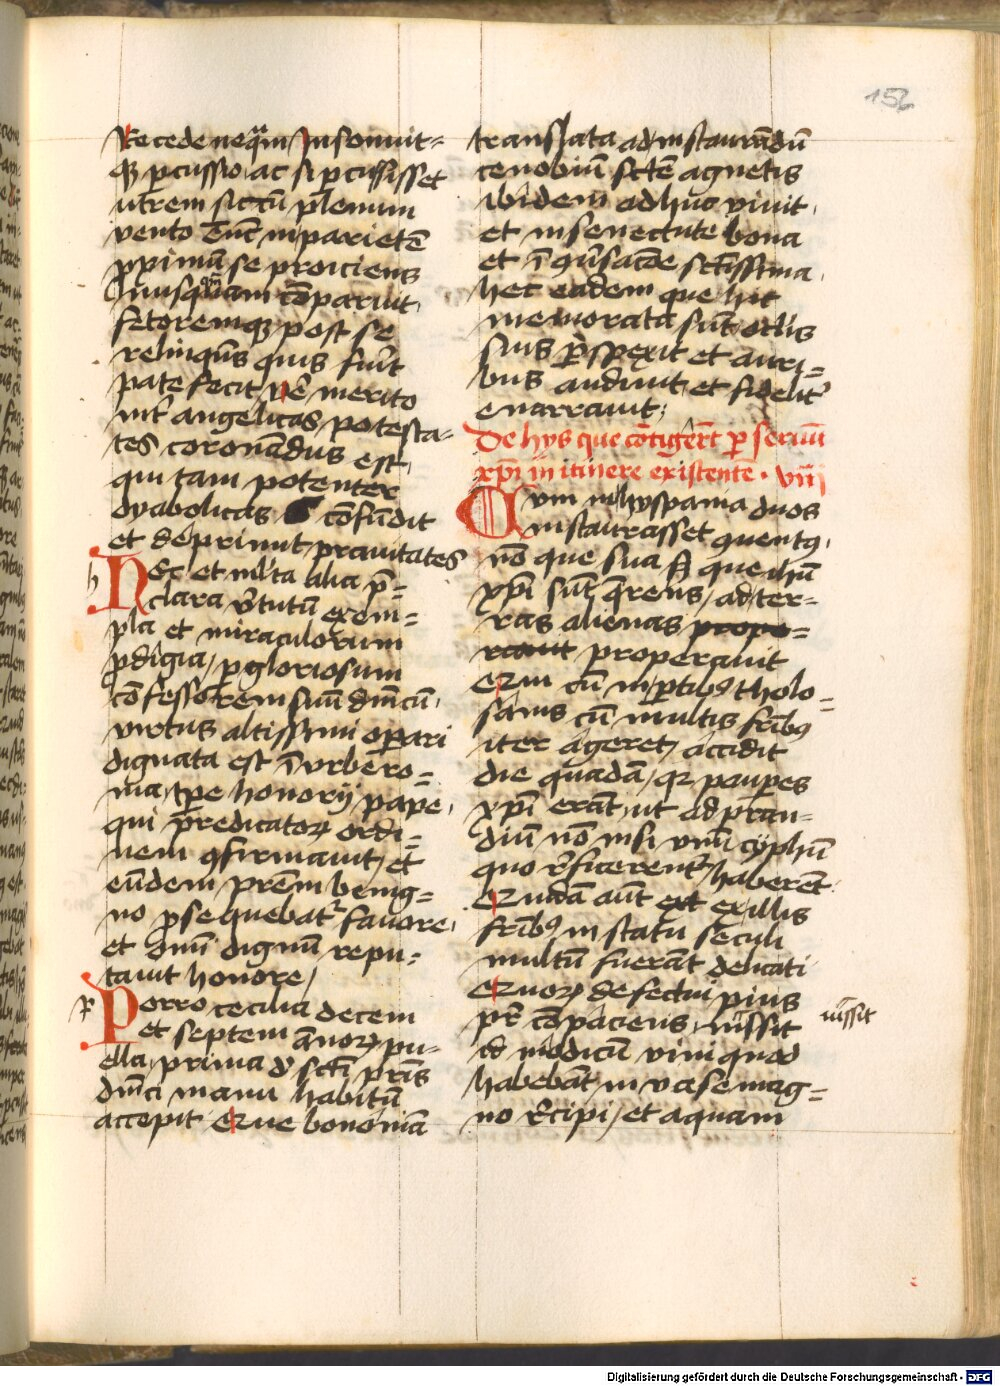 156
Recede nequam Insonuit=
q3 p̄cussio ac si p̄cussisset
utrem siccū plenum
vento Tūc in parietē
ꝓpimū se proiciens
nusquam cōparuit
fetoremq3 post se
relinquēs quis fuit
patefecit vē merito
int̄ angelicas potesta=
tes coronādus est
qui tam potenter
dyabolicas cōfūdit
et deprimit prauitates
h
Hec et mlta alia p̄=
clara v̄tutū exem=
pla et miraculorum
ꝓdigia p̄ gloriosum
cōfessorem suū dn̄icū
virtus altissimi operari
dignata est ī vrbe ro=
ma tp̄e honorij pape
qui predicatoꝝ ordi=
nem ꝯfirmauit et
eūdem p̄rem benig=
no ꝓsequebatr fauore
et omī dignū repu=
tauit honore
p
Porro cecilia decem
et septem ānoꝝ pu=
ella prima d̄ scī̄ pr̄is
dn̄ici manu habitū
accepit Que bononiā
translata ad instaurādū
cenobiū scē̄ agnetis
ibidem adhuc viuit
et in senectute bona
et ī ꝯuersacōe scī̄ssima
hec eadem que hic
memorata sūt oclis
suis p̄spexit et auri=
bus audiuit et fidelit̄
enarrauit
De hijs que cōtigerūt p̄ seruū
xp̄i in itinere existentē viij
Cum in hyspania duos
instaurasset ꝯuentꝰ
nō que sua s̄ que ihū
xp̄i sūt q̄rens ad ter=
ras alienas prope=
rauit properauit
Qui cū in p̄tibꝰ tholo=
sanis cū multis fr̄ibꝰ
iter ageret accidit
die quadā qr pauperes
xp̄i erāt ut ad pran=
diū nō nisi vnū cyphū
quo r̄ficerentr haberēt
Quidā aūt ex illis
fr̄ibꝰ in statu seculi
multū fuerāt delicati
Quoꝝ defectui pius
pr̄ cōpaciens iussit
iussit
modicū vini quod
habebāt in vase mag=
no r̄cipi et aquam
Digitalisierung gefördert durch die Deutsche Forschungsgemeinschaft - DFG